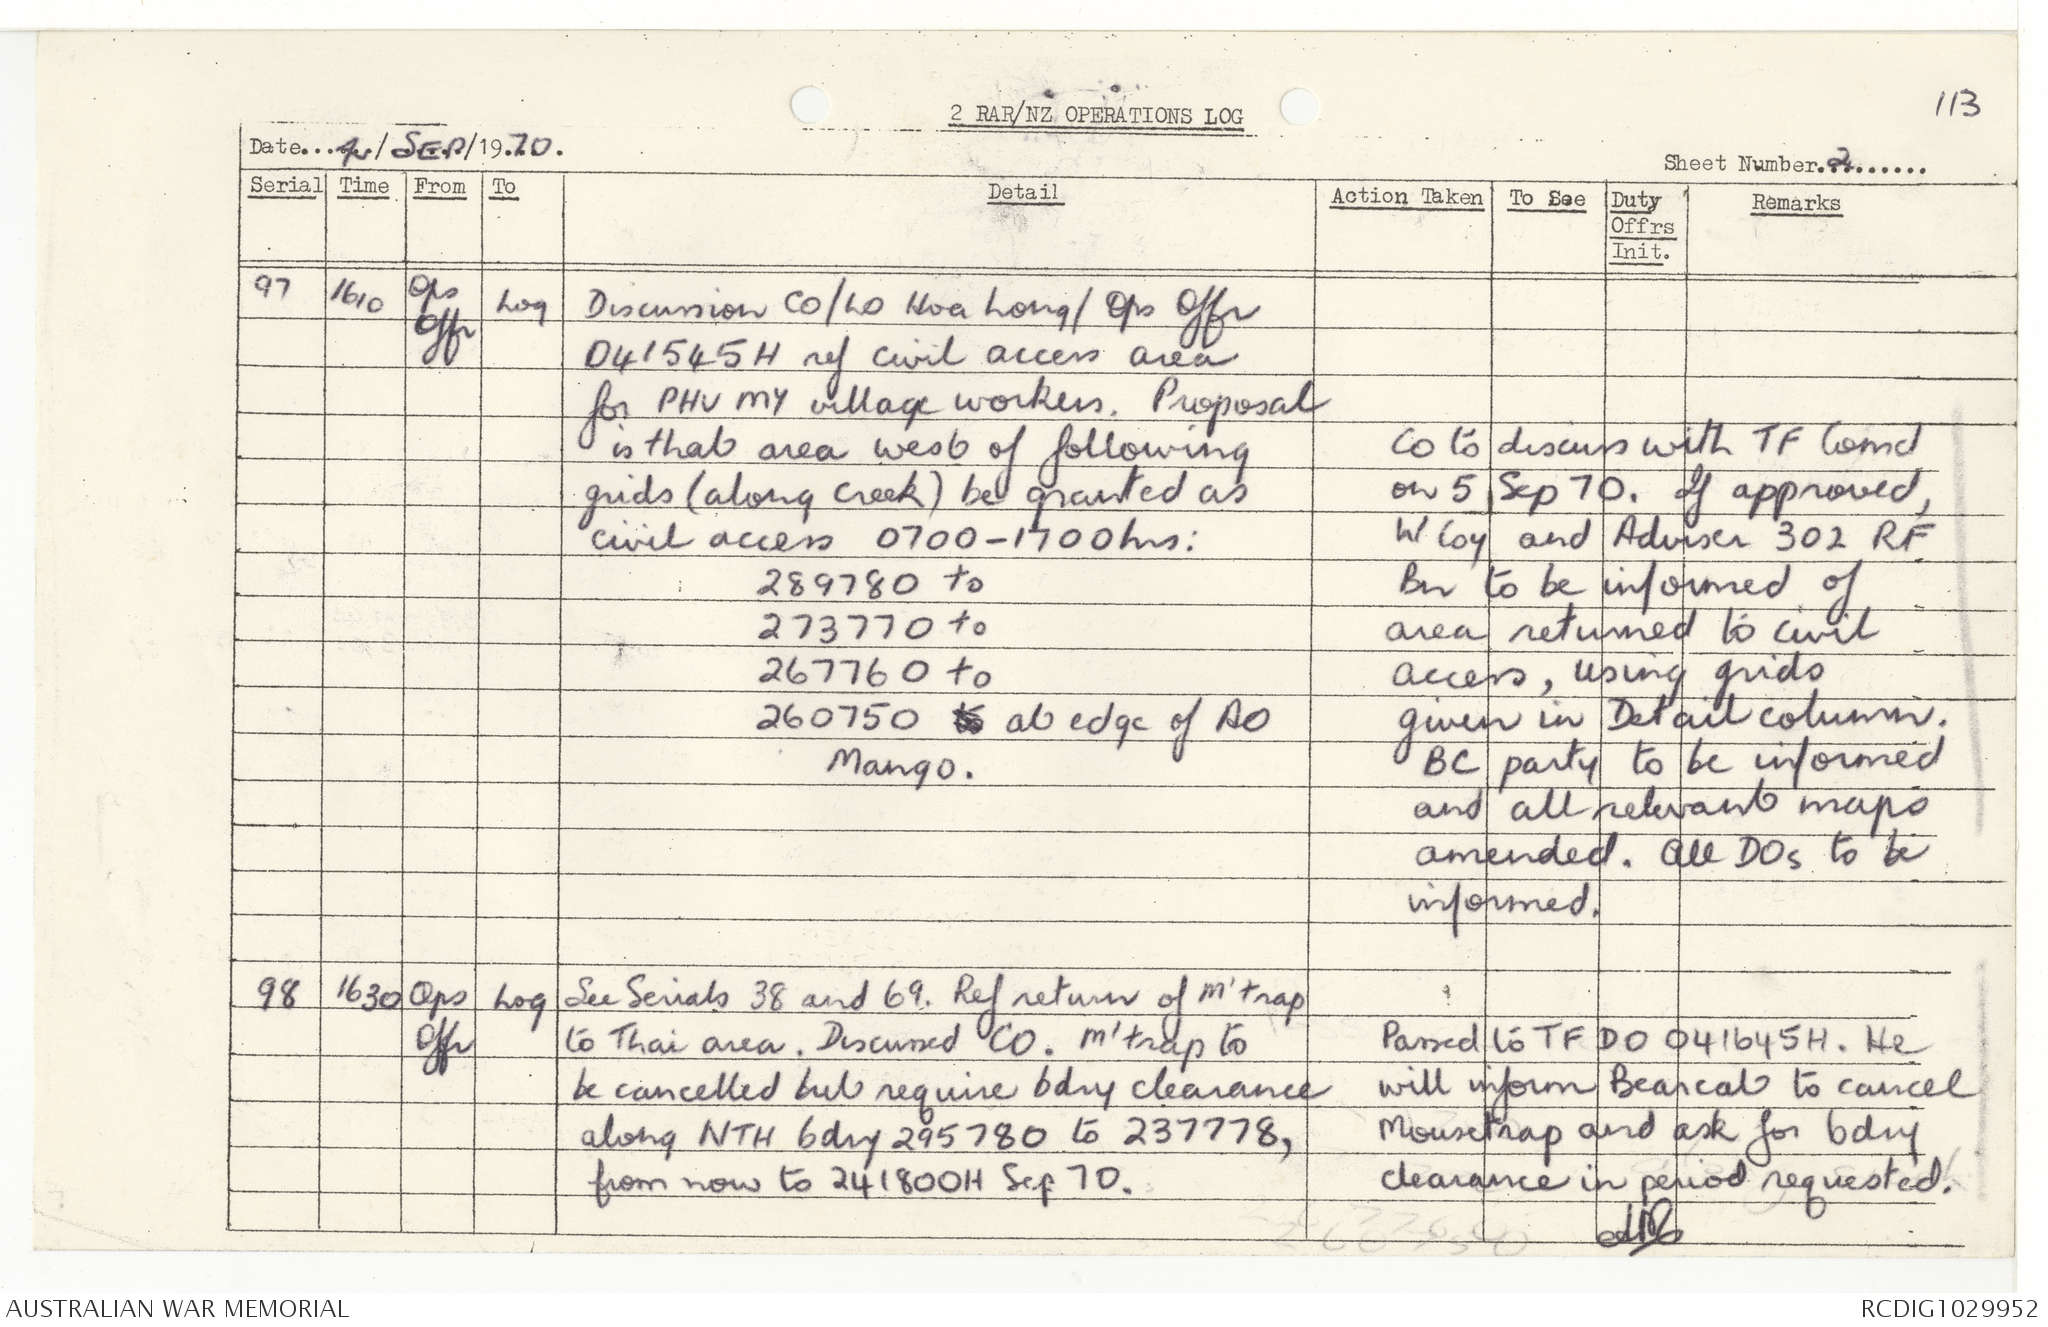 113
2 RAR/NZ OPERATIONS LOG
Date... 4/SEP/19.70.
Sheet Number.2.......
Serial Time From To Detail Action Taken To See Duty Offrs Init. Remarks
97 1610 Ops Offr Log Discussion CO/LO Hoa Long/ Ops Offr
041545H ref civil access area
for PHU MY village workers. Proposal
is that area west of following
grids (along creek) be granted as
civil access 0700-1700hrs:
289780 to
273770 to
267760 to
260750 at edge of AO
Mango.
CO to discuss with TF Comd
on 5 Sep 70. If approved,
W Coy and Adviser 302 RF
Bn to be informed of
area returned to civil
access, using grids
given in Detail column.
BC party to be informed
and all relevant maps
amended. All DOs to be
informed.
98 1630 Ops Offr Log See Serials 38 and 69. Ref return of M'trap
to Thai area. Discussed CO. M'trap to
be cancelled but require bdry clearance
along NTH bdry 295780 to 237778,
from now to 241800H Sep 70.
Passed to TF DO 041645H. He
will inform Bearcat to cancel
Mousetrap and ask for bdry
clearance in period requested.
AUSTRALIAN WAR MEMORIAL
RCDIG1029952